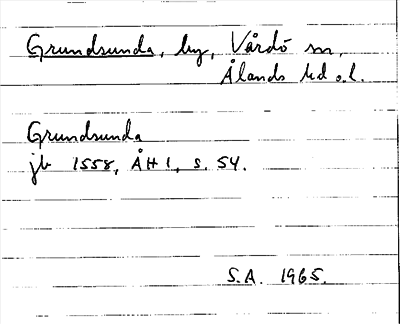 Grundsunda, by, Vårdö sn,
Ålands hd o.l.
Grundsunda
jb 1558, ÅH 1, s. 54.
S.A. 1965.